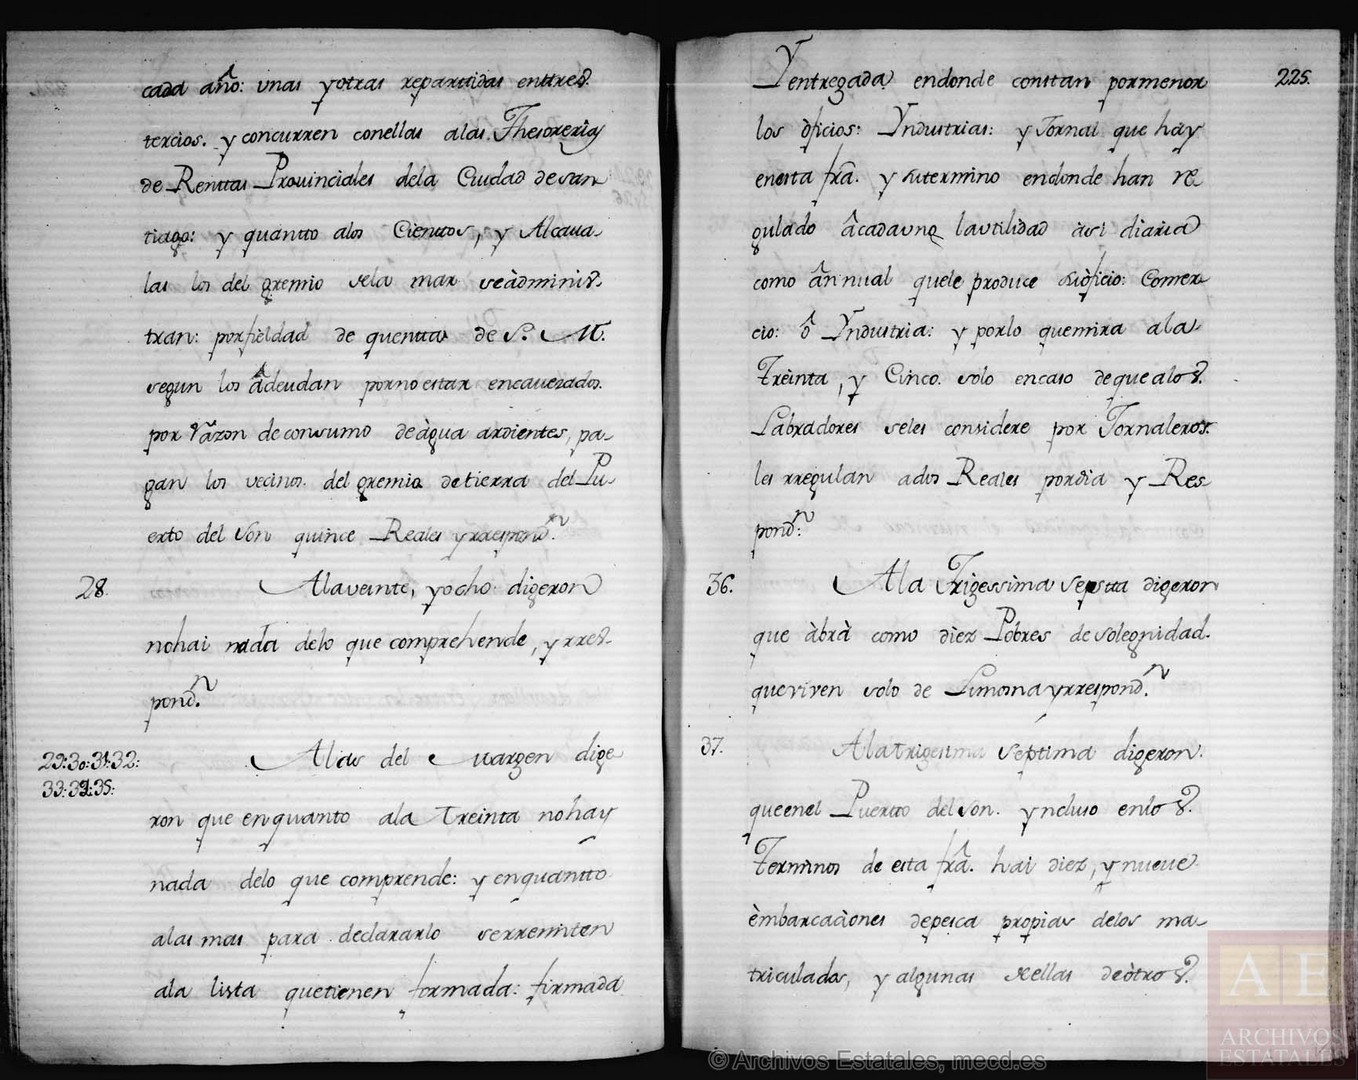 cada año: unas yotras repartidas enttres
tercios. y concurren conellas alas Thesoreria
de Renttas Prouinciales dela Ciudad desan
tiago: y quantto alos Cienttos, y Alcaua
las los del gremio dela mar seàdminis
tran: porfieldad de quentta de S. M.
segun los àdeudan porno estar encauezados.
por Razon deconsumo deàgua ardientes, pa
gan los vecinos. del gremio detierra del Pu
erto del Son quince Reales yrrespondn.
28. Alaveinte, yocho digeron
nohai nada delo que comprehende, yrres
pondn.
29:30:31:32:
33:34:35:
Alas del Margen dige
ron que enquanto ala Treinta nohay
nada delo que comprende: y enquantto
alas mas para declararlo serremiten
ala lista quetienen formada: firmada
225.
Yentregada endonde constan pormenor
los òficios: Yndustrias: y Jornal que hay
enesta fra. y sutermino endonde han re
gulado àcadauno lautilidad asi diaria
como ànnual quele produce suòficio: Comer
cio: ô Yndustria: y porlo quemira ala
Treinta, y Cinco. solo encaso dequealos
Labradores seles considere por Jornaleros.
les rregulan ados Reales pordia y Res
pondn:
36. Ala Trigessima Sepsta digeron
que àbrà como diez Pobres desolegnidad.
queviven solo de Limosna yrrespondn.
37. Alatrigesima septima digeron:
queenel Puerto delSon. yncluso enlos
Terminos de esta fra. hai diez, y nueve
èmbarcaciones depesca propias delos ma
triculados, y algunas dellas deòtros
© Archivos Estatales, mecd.es
AE
ARCHIVOS
ESTATALES